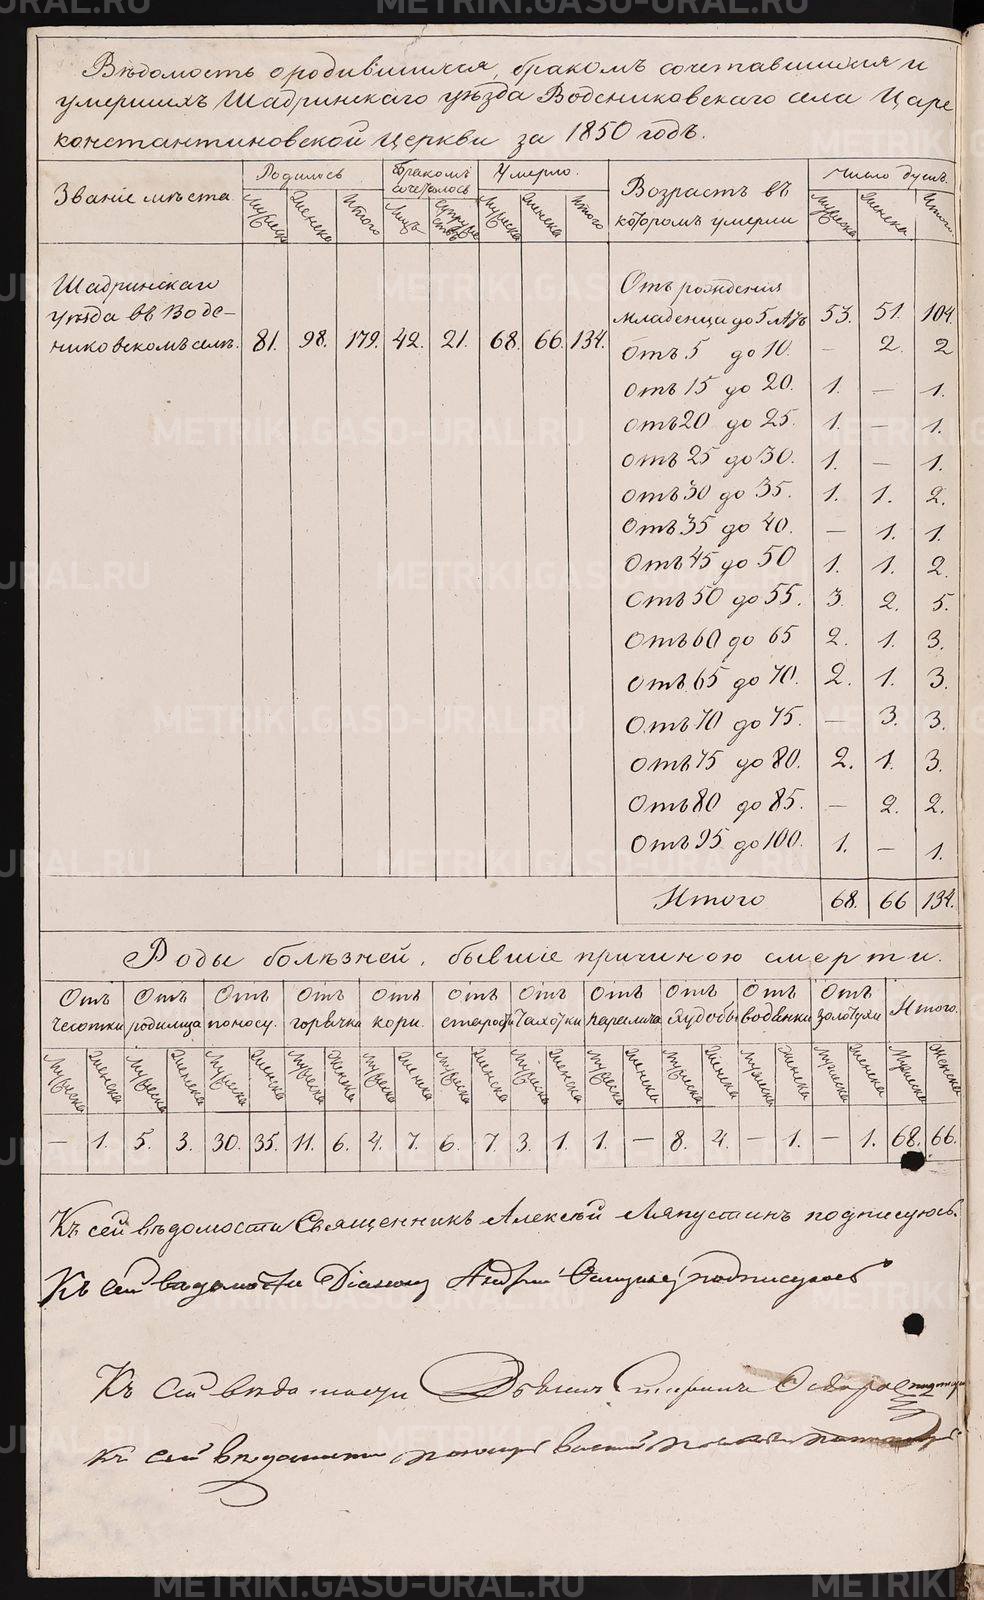 Вѣдомость о родившихся, бракомъ сочетавшихся и
умершихъ Шадринскаго уѣзда Водениковскаго села Царе
константиновской Церкви за 1850 годъ.
Званіе мѣста Родилось Бракомъ сочеталось Умерло. Возрастъ въ которомъ умерли Число душъ.
Мужеска Женска Итого Лицъ Супружествъ Мужеска Женска Итого Мужеска Женска Итого
Шадринскаго
уѣзда въ Воде-
никовскомъ селѣ. 81. 98. 179. 42. 21. 68. 66. 134.
Отъ рождения
младенца до 5 лѣтъ 53. 51. 104.
Отъ 5 до 10. — 2. 2
Отъ 15 до 20. 1. — 1.
Отъ 20 до 25. 1. — 1.
Отъ 25 до 30. 1. — 1.
Отъ 30 до 35. 1. 1. 2.
Отъ 35 до 40. — 1. 1.
Отъ 45 до 50 1. 1. 2.
Отъ 50 до 55. 3. 2. 5.
Отъ 60 до 65 2. 1. 3.
Отъ 65 до 70. 2. 1. 3.
Отъ 70 до 75. — 3. 3.
Отъ 75 до 80. 2. 1. 3.
Отъ 80 до 85. — 2. 2.
Отъ 95 до 100. 1. — 1.
Итого 68. 66 134.
Роды болѣзней, бывшие причиною смерти.
Отъ Отъ Отъ Отъ Отъ Отъ Отъ Отъ Отъ Отъ Отъ Итого.
чесотки родимца поносу. горячки кори. старости Чахотки паралича Худобы водянки золотухи
Мужеска Женска Мужеска Женска Мужеска Женска Мужеска Женска Мужеска Женска Мужеска Женска Мужеска Женска Мужеска Женска Мужеска Женска Мужеска Женска Мужеска Женска Мужеска Женска
— 1. 5. 3. 30. 35. 11. 6. 4. 7. 6. 7. 3. 1. 1. — 8. 4. — 1. — 1. 68. 66.
Къ сей вѣдомости Священникъ Алексѣй Ляпустинъ подписуюсь.
Къ сей ведомости Діаконъ Андрей подписуюсь
Къ сей вѣдомости
Къ сей вѣдомости
METRIKI.GASO-URAL.RU